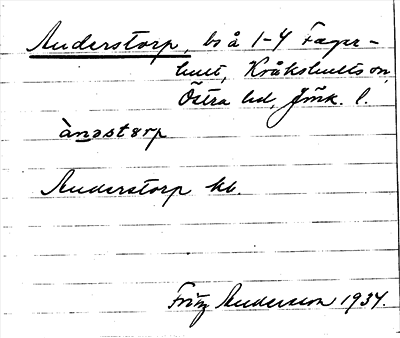 Anderstorp, bs å 1-4 Fager-
hult, Kråkshults sn,
Östra hd, Jönk. l.
ànastårp
Anderstorp kb.
Fritz Andersson 1934.